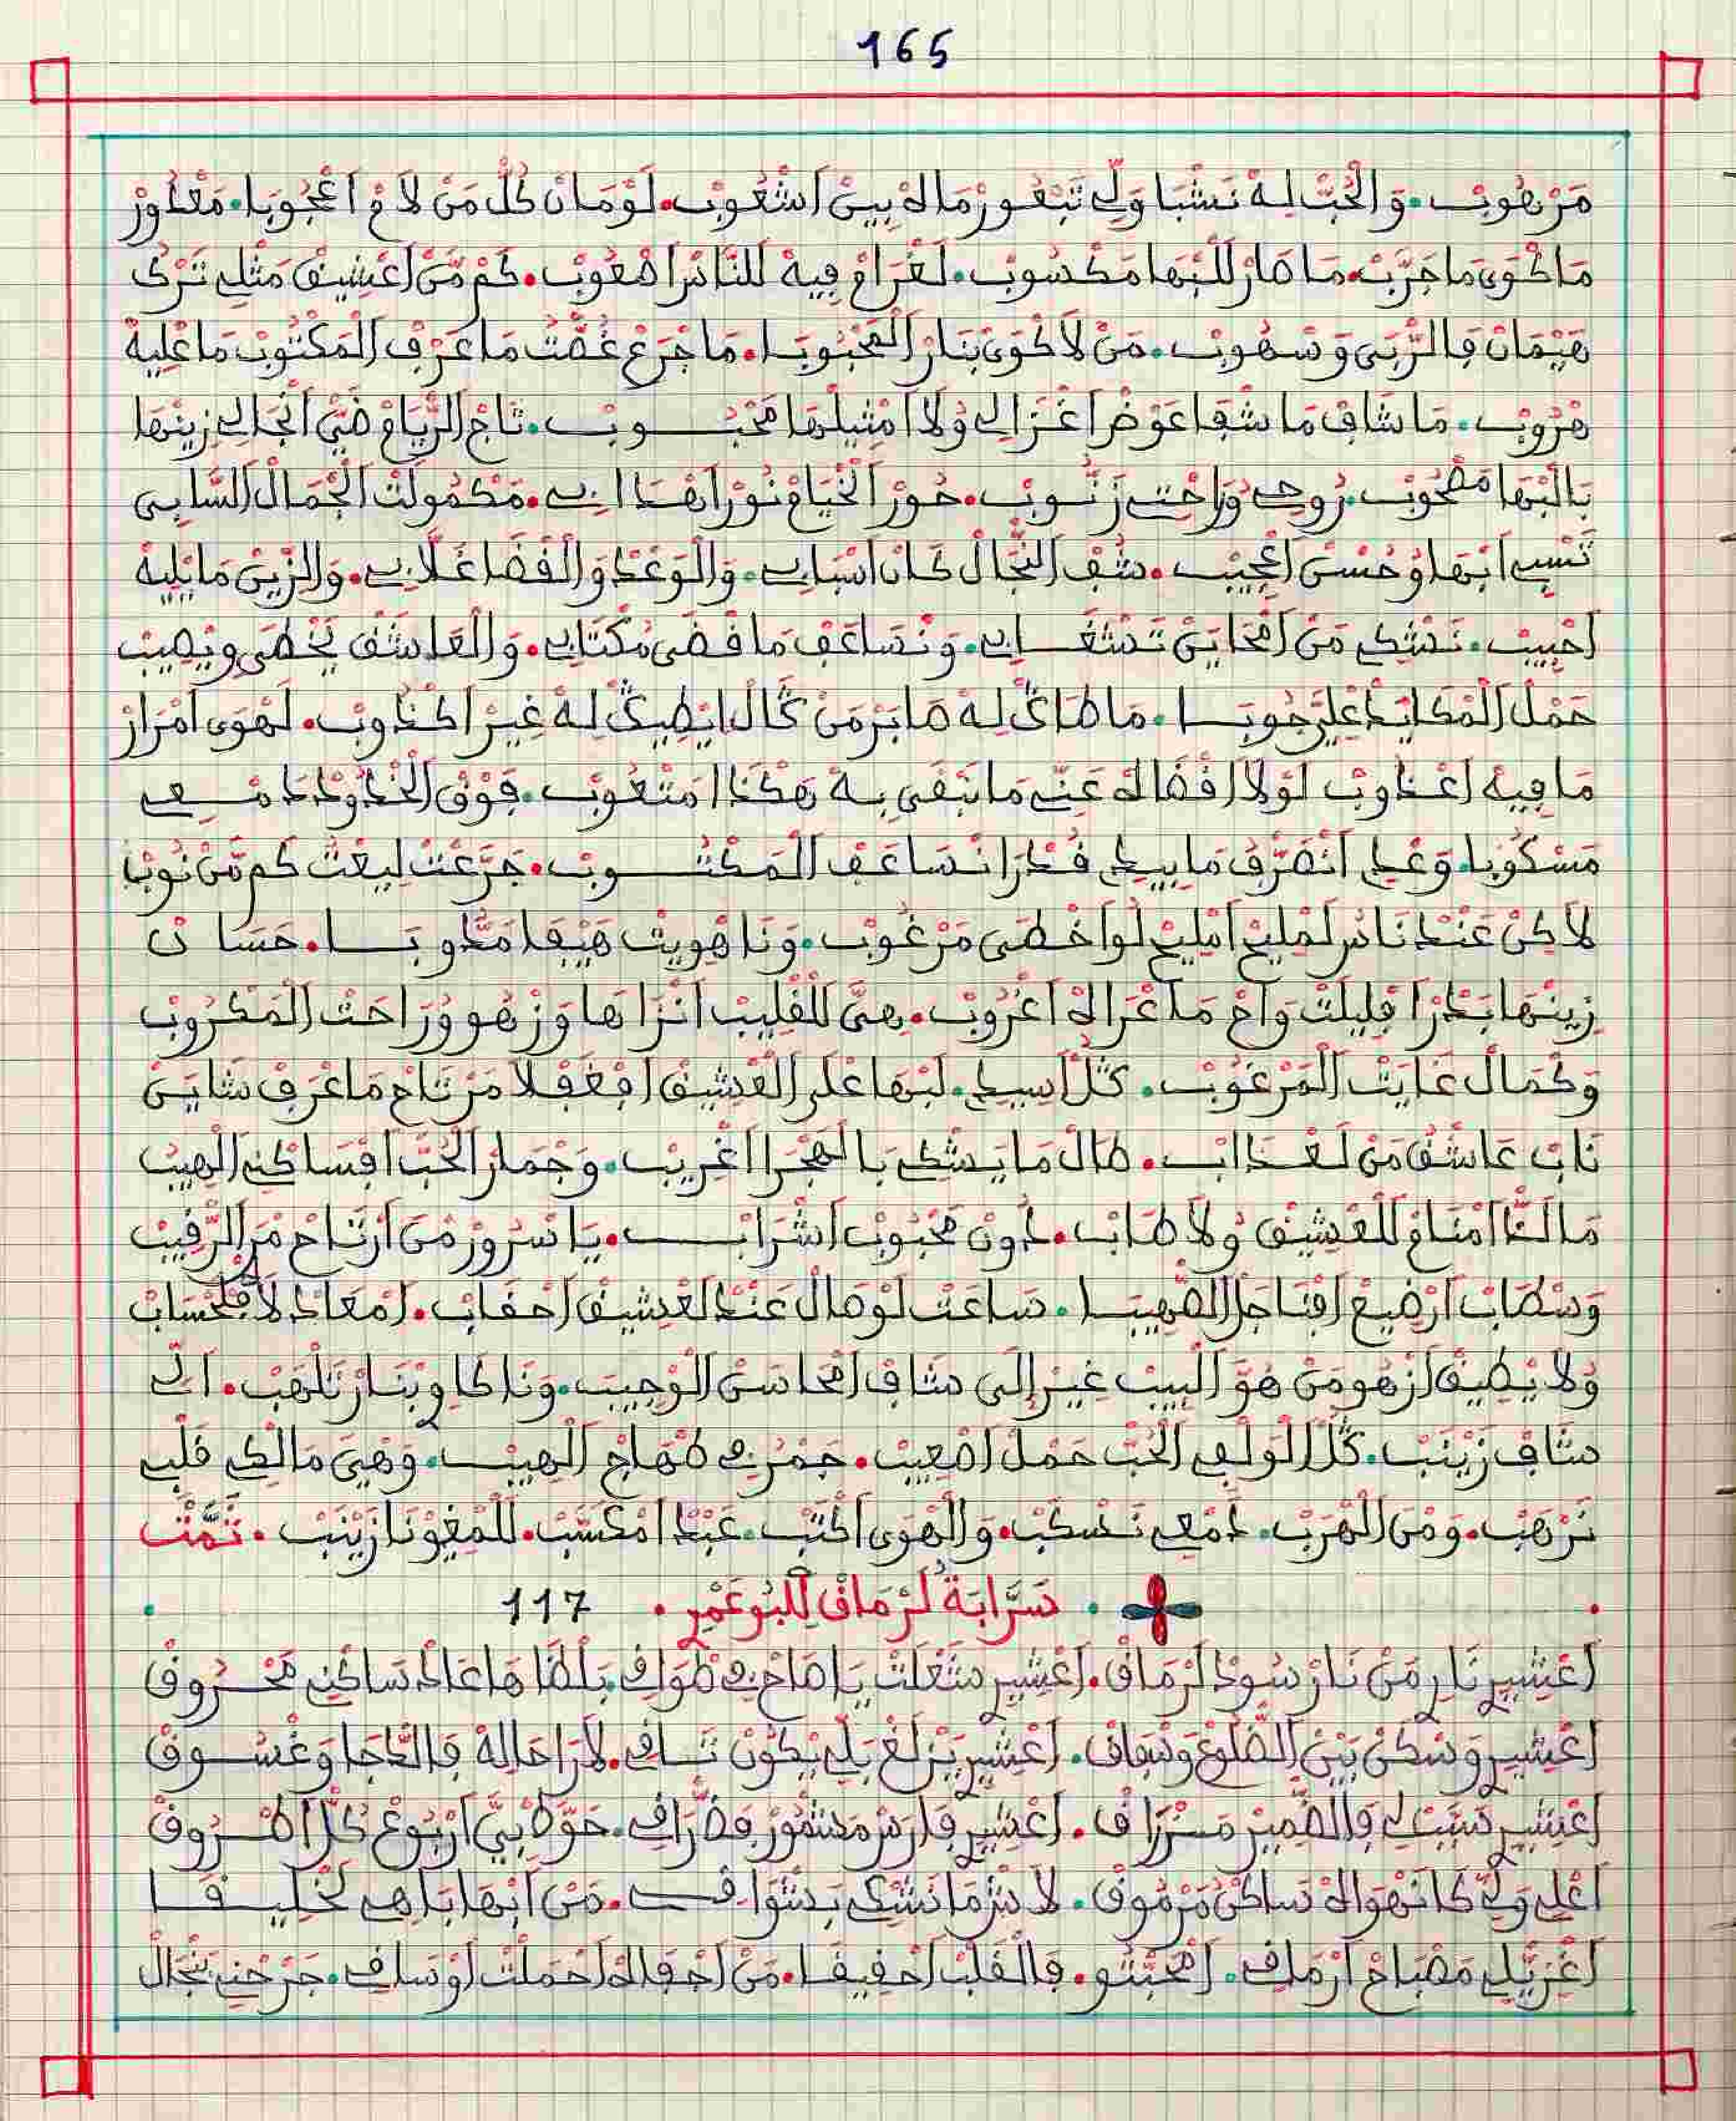 165
مَرْهُوبْ. وَالْحُبّْ لِهْ نَشْبَا وَلِّي تَبْعُوزْمَالَهْ بِينْ اَشْعُوبْ. لَوْمَانْ كُلّْ مَنْ لاَمْ اَعْجُوبَا. مَعْدُورْ
مَاكْوَى مَاجَرَّبْ. مَاصَارْ لَلْبْهَا مَكْسُوبْ. لَغْرَامْ فِيهْ لَلنَّاسْ اصْعُوبْ. كَمْ مّنْ اَعْشِيقْ مَثْلِي تَرْكُ
هَيْمَانْ فَالرّْبَى وَسْهُوبْ. مَنْ لاَكْوَى بْنَارْ الْمَحْبُوبَا. مَاجْرَعْ غُصّْتُ مَاعْرَفْ الْمَكْتُوبْ مَاعْلِيهْ
هْرُوبْ. مَاشَافْ مَاشْقَا عَوْضْ اَغْزَالِي وُلاَ امْثِيلْهَا مَحْبُوبْ. تَاجْ الرّْيَامْ ضَيّْ اَنْجَالِي زِينْهَا
بَالْبْهَا مَصْحُوبْ. رُوحِي وُرَاحْتِي زَنُّوبْ. حُورْ الْخْيَامْ نُورْ اَهْدَابِي. مَكْمُولْتْ الْجْمَالْ السَّابِي
تَسْبِي اَبْهَا وُحُسْنْ اَعْجِيبْ. شُفْ النّْجَالْ كَانْ اَسْبَابِي. وَالْوَعْدْ وَالْقْضَا غَلاَّبِي. وَالزّينْ مَا يْلِيهْ
اَحْبِيبْ. نَشْكِي مَنْ اَمْحَايَنْ تَشْغَابِي. وَنْسَاعَفْ مَا قْضَى مْكْتَابِي. وَالْعَاشَقْ يَخْطَى وِيْصِيبْ
حَمْلْ الْمْكَايْدْ اعْلِيَّ جُوبَا. مَاطَاگْ لِهْ صَابَرْ مَنْ گَالْ ايْطِيگْ لِهْ غِيرْ اكْدُوبْ. لَهْوَى اَمْرَارْ
مَافِيهْ اَعْدُوبْ لَوْلاَ اقْضَاهْ عَنِّي مَا نَبْقَى بِهْ هَكْدَا مَتْعُوبْ. فَوْقْ الْخْدُودْ دَمْعِي
مَسْكُوبَا. وَعْدِي اَنْصَرّْفُ مَا بِيدِي قُدْرَا نْسَاعَفْ الْمَكْتُوبْ. جَرَّعْتْ لِيعْتُ كَمْ مّنْ نُوبْ
لاَكِنْ عَنْدْ نَاسْ لَمْلِيحْ اَمْلِيحْ لُو اَخْطَى مَرْغُوبْ. وَنَا هْوِيتْ هَيْفَا مَدُّوبَا. حَسَانْ
زِينْهَا بَدْرْ اقْلِيلْتْ وَاحْ مَاعْرَاهْ اَغْرُوبْ. هِيَ لَلْقْلِيبْ اَنْزَاهَا وَزْهُو وُرَاحْتْ الْمَكْرُوبْ
وَكْمَالْ غَايْتْ الْمَرْغُوبْ. گَلْ اَسِيدِي. لَبْهَا عْلَى الْعْشِيقْ افْغَفْلاَ مَرْتَاحْ مَاعْرَفْ شَايَنْ
نَابْ عَاشَقْ مَنْ لَعْدَابْ. طَالْ مَا يَشْكِي بَالْهَجْرَا اغْرِيبْ. وَجْمَارْ الْحُبّْ افْسَاكْنِي الْهِيبْ
مَالْدَّا امْنَامْ لَلْعْشِيقْ وُلاَ طَابْ. دُونْ مَحْبُوبْ اَشْرَابْ. يَا سْرُورْ مَنْ اَرْتَاحْ مَرْ الرّْقِيبْ
وَسْطَابْ اَرْضِيعْ افْتَاجَلْ الصّْهِيبَا. سَاعَتْ لَوْصَالْ عَنْدْ لَعْشِيقْ اَحْقَابْ. اَمْعَادْ لاَ فَلْحْسَابْ
وُلاَ يْطِيقْ اَزْهُو مَنْ هُوَّ الْبِيبْ غِيرْ إِلَى شَافْ اَمْحَاسَنْ الْوْجِيبْ. وَنَا كَاوِي بْنَارْ تَلْهَبْ. اَلِّي
شَافْ زَيْنَبْ. گَلْ الْوَلْعِي الْحُبّْ حَمْلُ اصْعِيبْ. جَمْرُ فِي مْهَاجْ الْهِيبْ. وَهْيَ مَالْكِي قَلْبِي
تَرْهَبْ. وَمْنْ الْهْرَبْ. دَمْعِي نَسْكَبْ. وَالْهْوَى اكْتَبْ. عَبْدْ امْكَسَّبْ. لَلْمْغُونَا زَيْنَبْ. تَمَّتْ
. سَرَّابَةْ لَرْمَاقْ لِلْبُوعَمْرِي. 117
اَعْشِيرِي نَارِي مَنْ نَارْ سُودْ لَرْمَاقْ. اَعْشِيرِي شَعْلَتْ يَا صَاحْ فِي طْوَاقِي. بَلْطَاهَا عَادْ سَاكْنِي مَحْرُوقْ
اَعْشِيرِي وَسْكَنْ بَيْنْ الضّْلُوعْ وَسْبَاقْ. اَعْشِيرِي يَنْزَلْغْ بَلِّي يْكُونْ تَاقِي. لاَ رَاحَا لِهْ فَالدّْجَا وَغْسُوقْ
اَعْشِيرِي شَبَّتْ لِي فَالضّْمِيرْ مَزْرَاقْ. اَعْشِيرِي فَارَسْ مَشْهُورْ فَطْرَاقِي. حَوَّطْ بِيَّ اَرْبُوعْ كُلّْ اَطْرُوقْ
اَعْلِي وَلِّي كَا نَهْوَاهْ سَاكْنُ مَرْمُوقْ. لاَ شَرْمَا نَشْكِي بَشْوَاقِي. مَنْ اَبْهَا بَاهِي لَخْلِيقَا
اَغْزِيّْلِي مَصْبَاحْ اَرْمَاقِي. اَمْحَبّْتُو. فَالْقَلْبْ اَحْقِيقَا. مَنْ اَجْفَاهْ اَحْمَلْتْ اَوْسَاقِي. جَرْحْنِي بَنْجَالْ